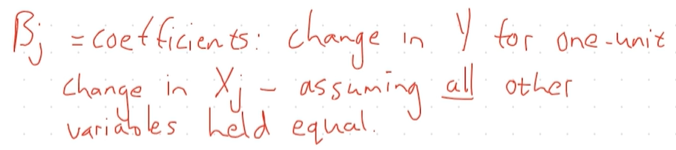 Bj = coefficients: change in Y for one-unit
change in Xj - assuming all other
variables held equal.